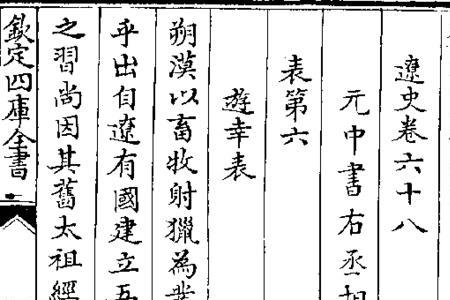 遼史卷六十八
元中書右丞相
表第六
遊幸表
朔漠以畜牧射獵為業
乎出自遼有國建立五
之習尚因其舊太祖經
欽定四庫全書